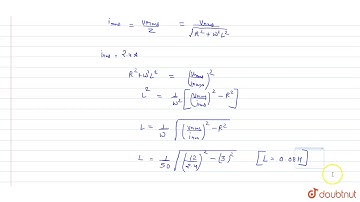 i_rms = V_rms / Z = V_rms / √(R² + ω²L²)
i_rms = 2.4A
R² + ω²L² = (V_rms / i_rms)²
L² = 1/ω² [(V_rms / i_rms)² − R²]
L = 1/ω √((V_rms / i_rms)² − R²)
L = 1/50 √((12 / 2.4)² − (3)²) [L = 0.08H]
doubtnut